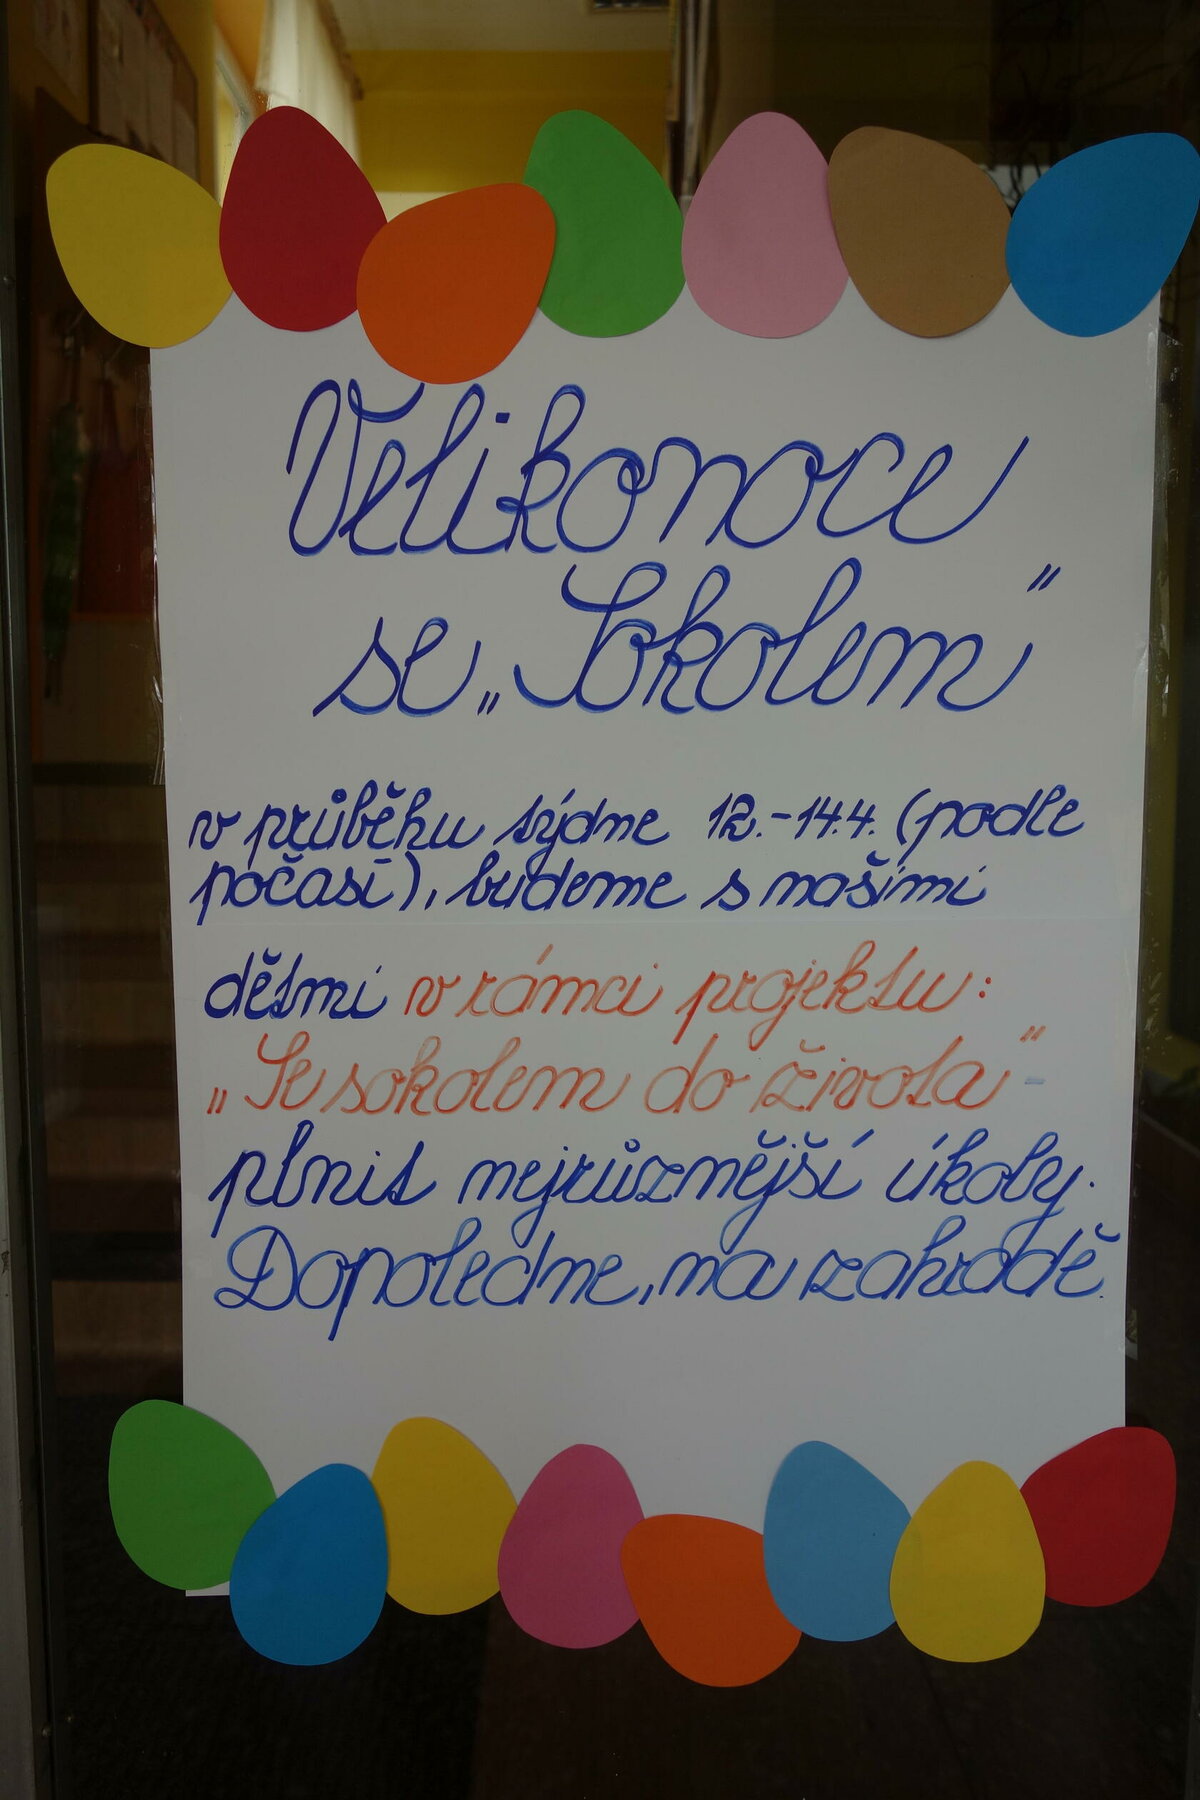 Velikonoce
se „Sokolem“
v průběhu týdne 12.-14.4. (podle
počasí), budeme s našimi
dětmi v rámci projektu:
„Se sokolem do života“ -
plnit nejrůznější úkoly.
Dopoledne, na zahradě.